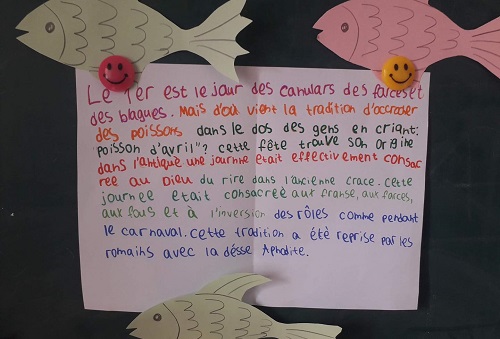 Le 1er est le jour des canulars des farces et
des bagues. Mais d'où vient la tradition d'accrocler
des poissons dans le dos des gens en criant:
"poisson d'avril"? cette fête trouve son origine
dans l'antique une journne etait effectivement consac
ree au Dieu du rire dans l'ancienne crace. cette
journee etait consacreè aux franse, aux farces,
aux fous et à l'inversion des rôles comme pendant
le carnaval. cette tradition a étè reprise par les
romains avec la désse Aphadite.